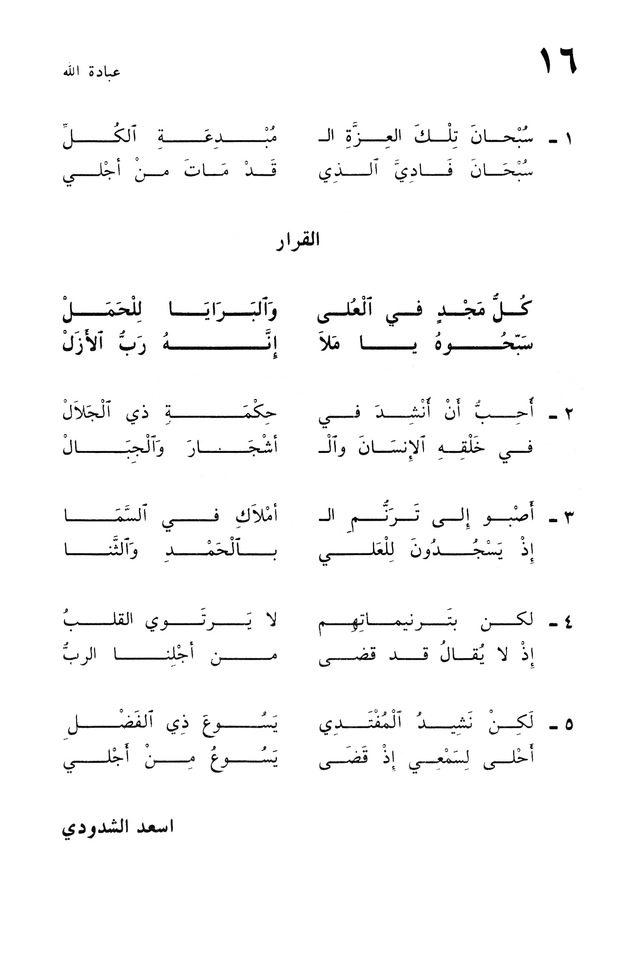 ١٦
عبادة الله
١ ـ سُبْحانَ تِلْكَ العِزَّةِ الـ مُبْدِعَةِ ٱلكُلِّ
سُبْحَانَ فَادِيَّ ٱلذِي قَدْ مَاتَ منْ أجْلي
القرار
كُلُّ مَجْدٍ في ٱلْعُلى وَٱلبَرَايَا لِلْحَمَلْ
سَبّحُوهُ يا مَلاَ إنَّهُ رَبُّ ٱلأَزَلْ
٢ ـ أَحِبُّ أَنْ أُنْشِدَ في حِكْمَةِ ذي ٱلْجَلاَلْ
في خَلْقِهِ ٱلإنْسَانَ وٱلْـ أشْجَارَ وَٱلْجِبَالْ
٣ ـ أَصْبو إلى تَرَنُّمِ الـ أمْلاَكِ في ٱلسَّمَا
إذْ يَسْجُدُونَ لِلْعَلي بٱلْحَمْدِ وَٱلثَّنا
٤ ـ لكن بتَرنيماتِهِم لا يَرتَوي القلبُ
إذْ لا يُقالُ قد قضى من أجْلِنا الربُّ
٥ ـ لَكِنْ نَشيدُ ٱلْمُفْتَدي يَسُوعَ ذِي ٱلفَضْلِ
أَحْلى لِسَمْعي إذْ قَضَى يَسُوعُ مِنْ أَجْلي
اسعد الشدودي